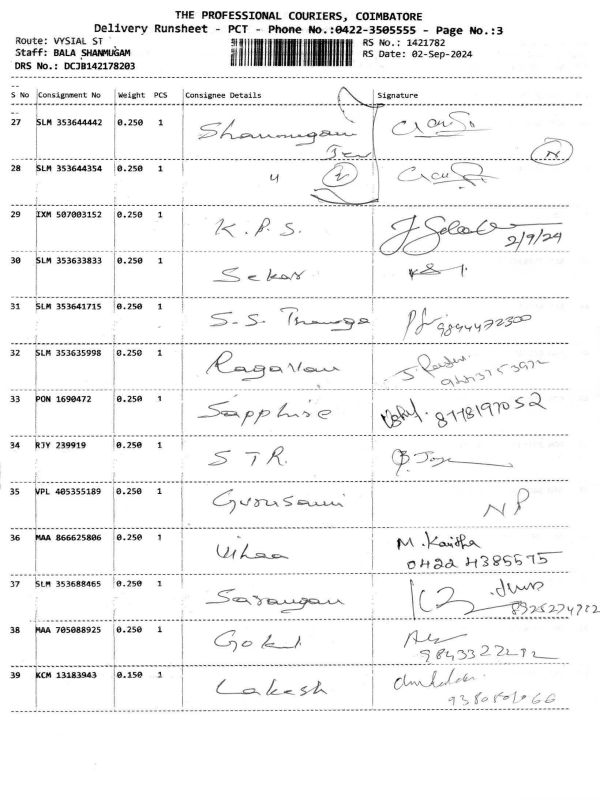 THE PROFESSIONAL COURIERS, COIMBATORE
Delivery Runsheet - PCT - Phone No.:0422-3505555 - Page No.:3
Route: VYSIAL ST RS No.: 1421782
Staff: BALA SHANMUGAM RS Date: 02-Sep-2024
DRS No.: DCJB142178203
S No Consignment No Weight PCS Consignee Details Signature
27 SLM 353644442 0.250 1 Shanmugam
28 SLM 353644354 0.250 1 " 2
29 IXM 507003152 0.250 1 K.P.S. 2/9/24
30 SLM 353633833 0.250 1 Sekar
31 SLM 353641715 0.250 1 S.S. Thanga 9894472300
32 SLM 353635998 0.250 1 Ragavan
33 PON 1690472 0.250 1 Sapphire 8778197052
34 RJY 239919 0.250 1 STR.
35 VPL 405355189 0.250 1 Gurusami NP
36 MAA 866625806 0.250 1 Vihaa M. Kavitha
0422 4385575
37 SLM 353688465 0.250 1 Sarangan
38 MAA 705088925 0.250 1 Gokul
9843327292
39 KCM 13183943 0.150 1 Lakesh